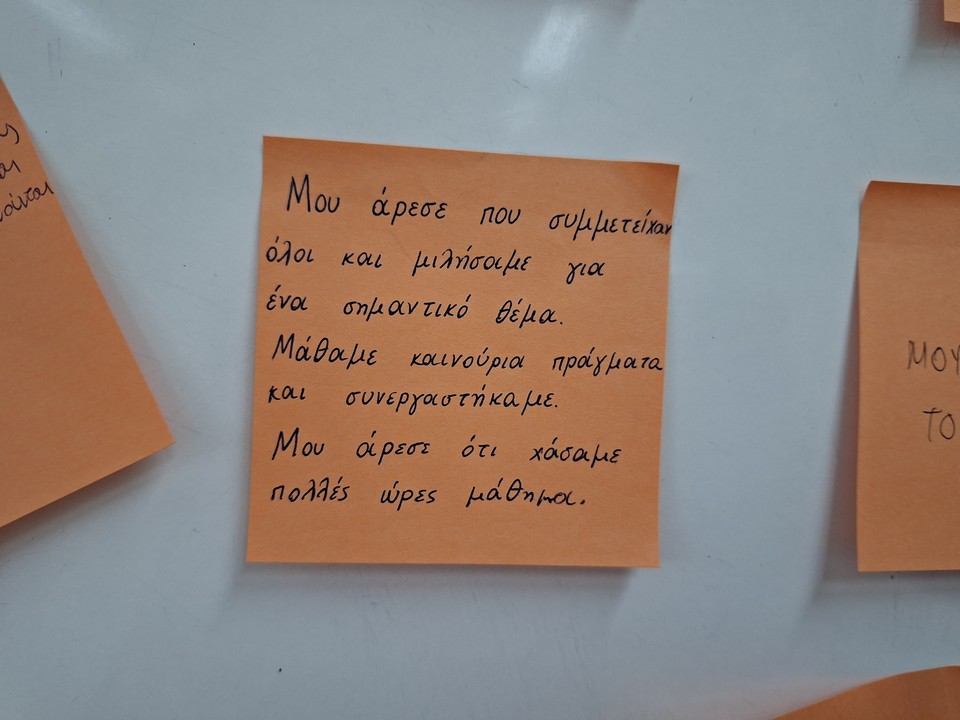 Μου άρεσε που συμμετείχαν
όλοι και μιλήσαμε για
ένα σημαντικό θέμα.
Μάθαμε καινούρια πράγματα
και συνεργαστήκαμε.
Μου άρεσε ότι χάσαμε
πολλές ώρες μάθημα.
ΜΟΥ
ΤΟ